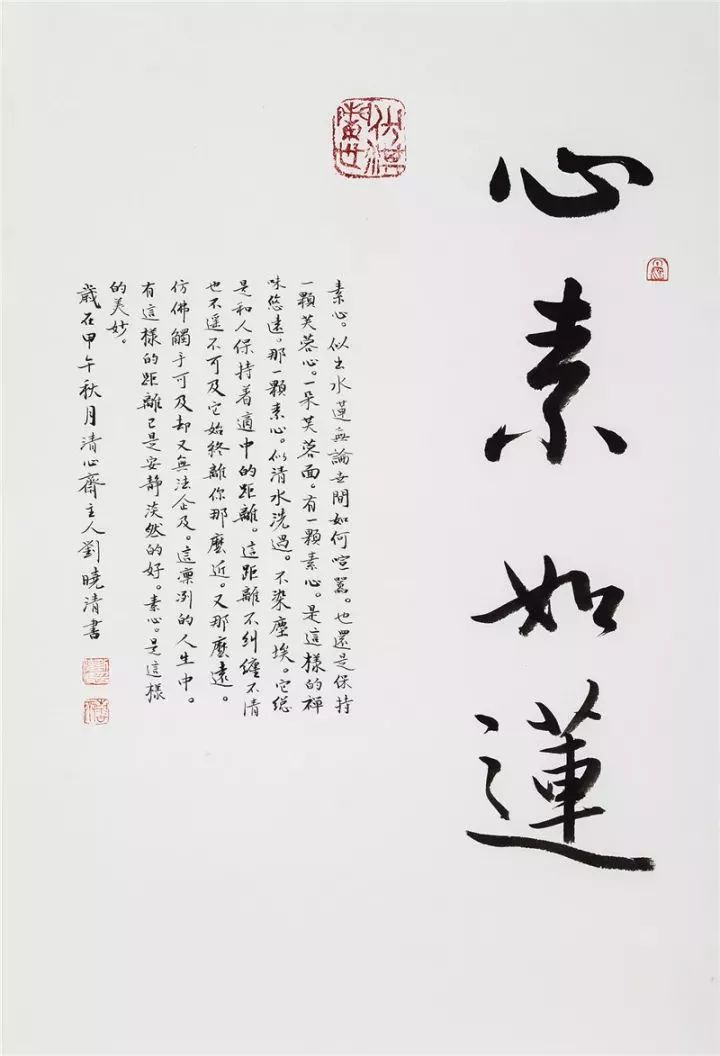 心素如蓮
素心。似出水蓮無論世間如何喧嚣。也還是保持
一顆芙蓉心。一朵芙蓉面。有一顆素心。是這樣的禅
味悠遠。那一顆素心。似清水洗過。不染塵埃。它總
是和人保持着適中的距離。這距離不糾纏不清
也不遥不可及它始終離你那麽近。又那麽遠。
仿佛觸手可及却又無法企及。這凛冽的人生中。
有這樣的距離已是安靜淡然的好。素心。是這樣
的美妙。
歲在甲午秋月清心齋主人劉曉清書